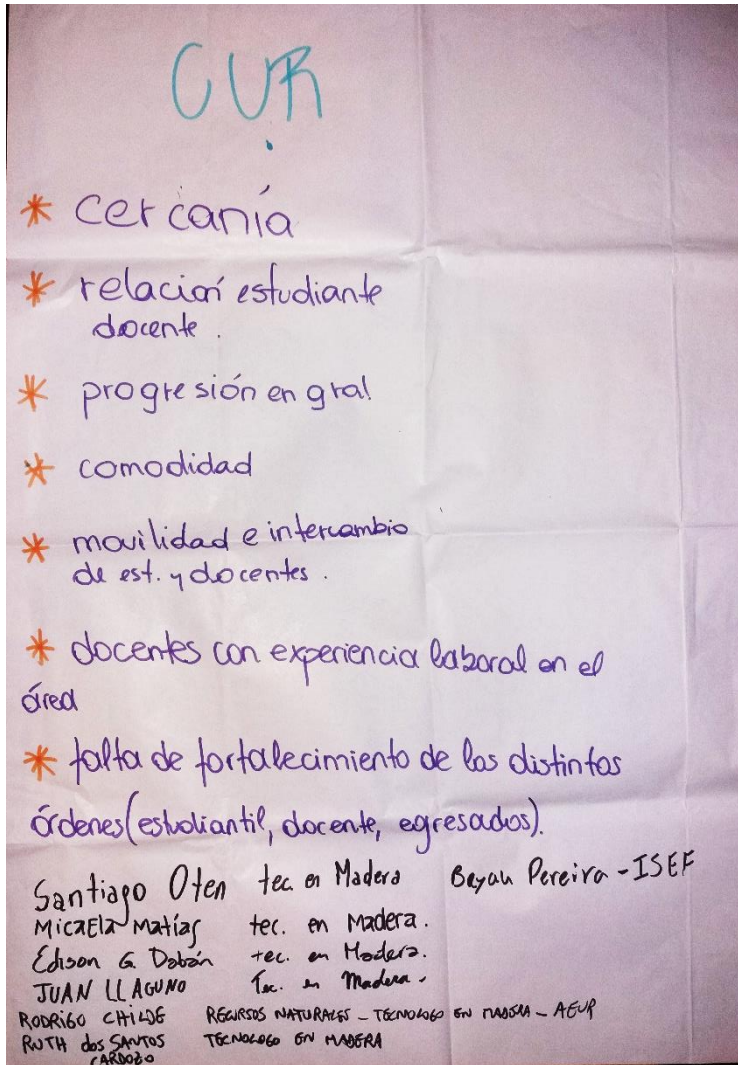 CUR
* cercanía
* relación estudiante
docente.
* progresión en gral
* comodidad
* movilidad e intercambio
de est. y docentes.
* docentes con experiencia laboral en el
área
* falta de fortalecimiento de los distintos
órdenes (estudiantil, docente, egresados).
Santiago Oten tec. en Madera Bayan Pereira - ISEF
Micaela Matías tec. en Madera.
Edison G. Dobán tec. en Madera.
JUAN LLAGUNO Tec. en Madera.
RODRIGO CHILDE RECURSOS NATURALES - TECNOLOGO EN MADERA - AEUR
RUTH dos SANTOS TECNOLOGO EN MADERA
CARDOZO